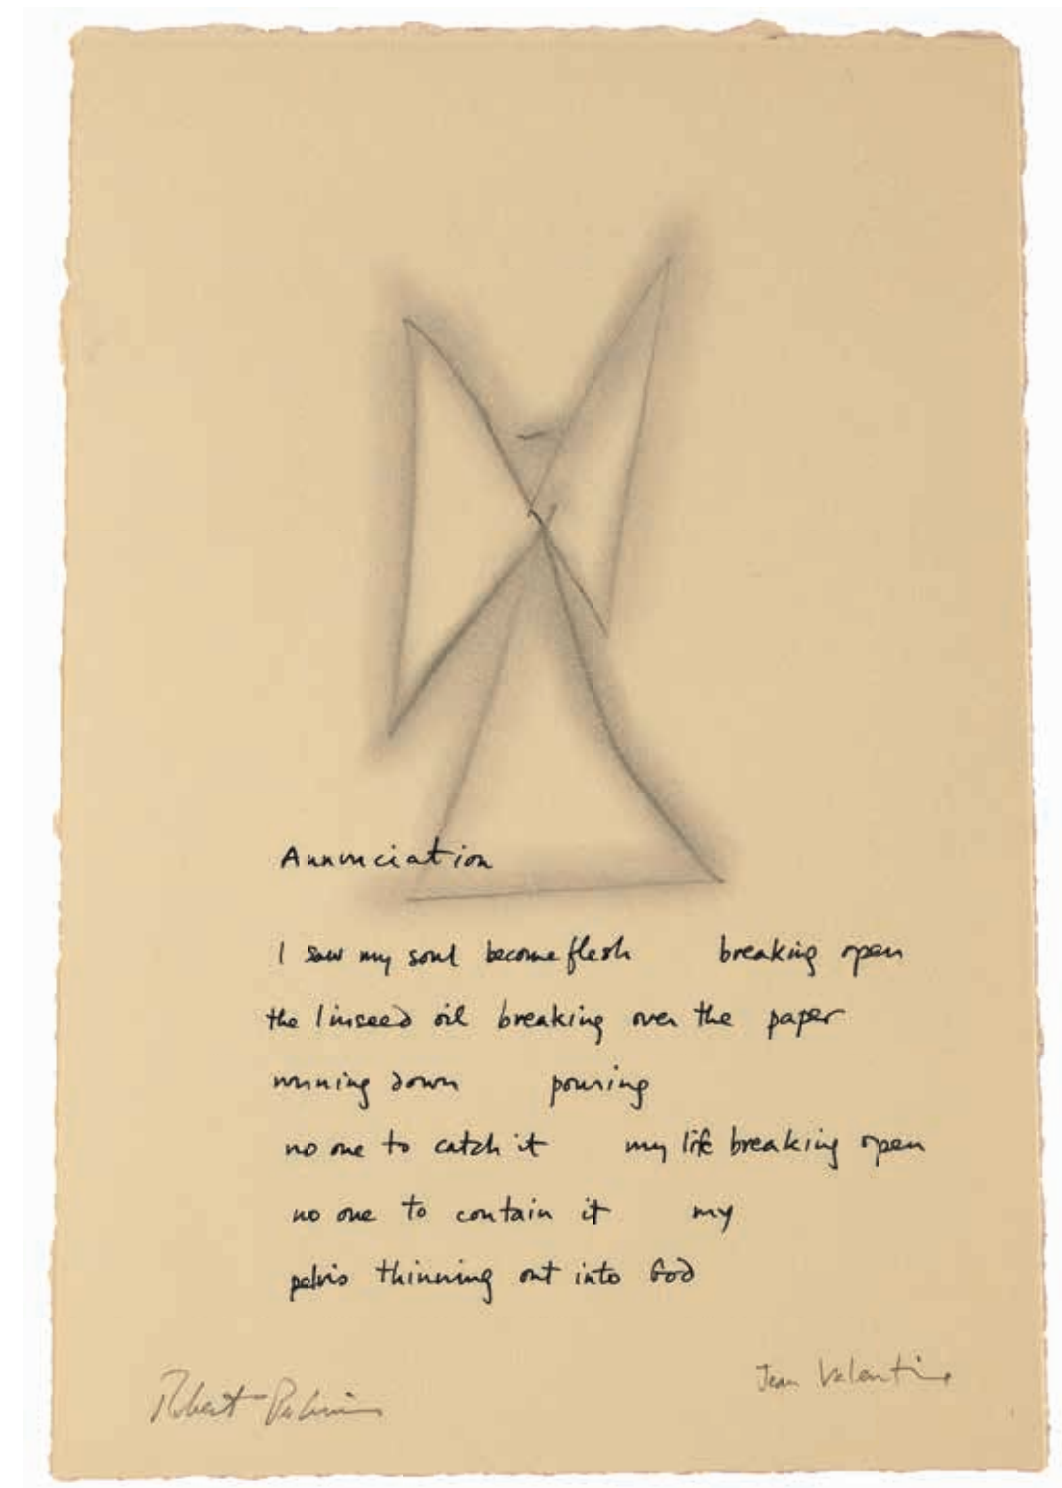 Annunciation
I saw my soul become flesh breaking open
the linseed oil breaking over the paper
running down pouring
no one to catch it my life breaking open
no one to contain it my
pelvis thinning out into God
Jean Valentine
Robert